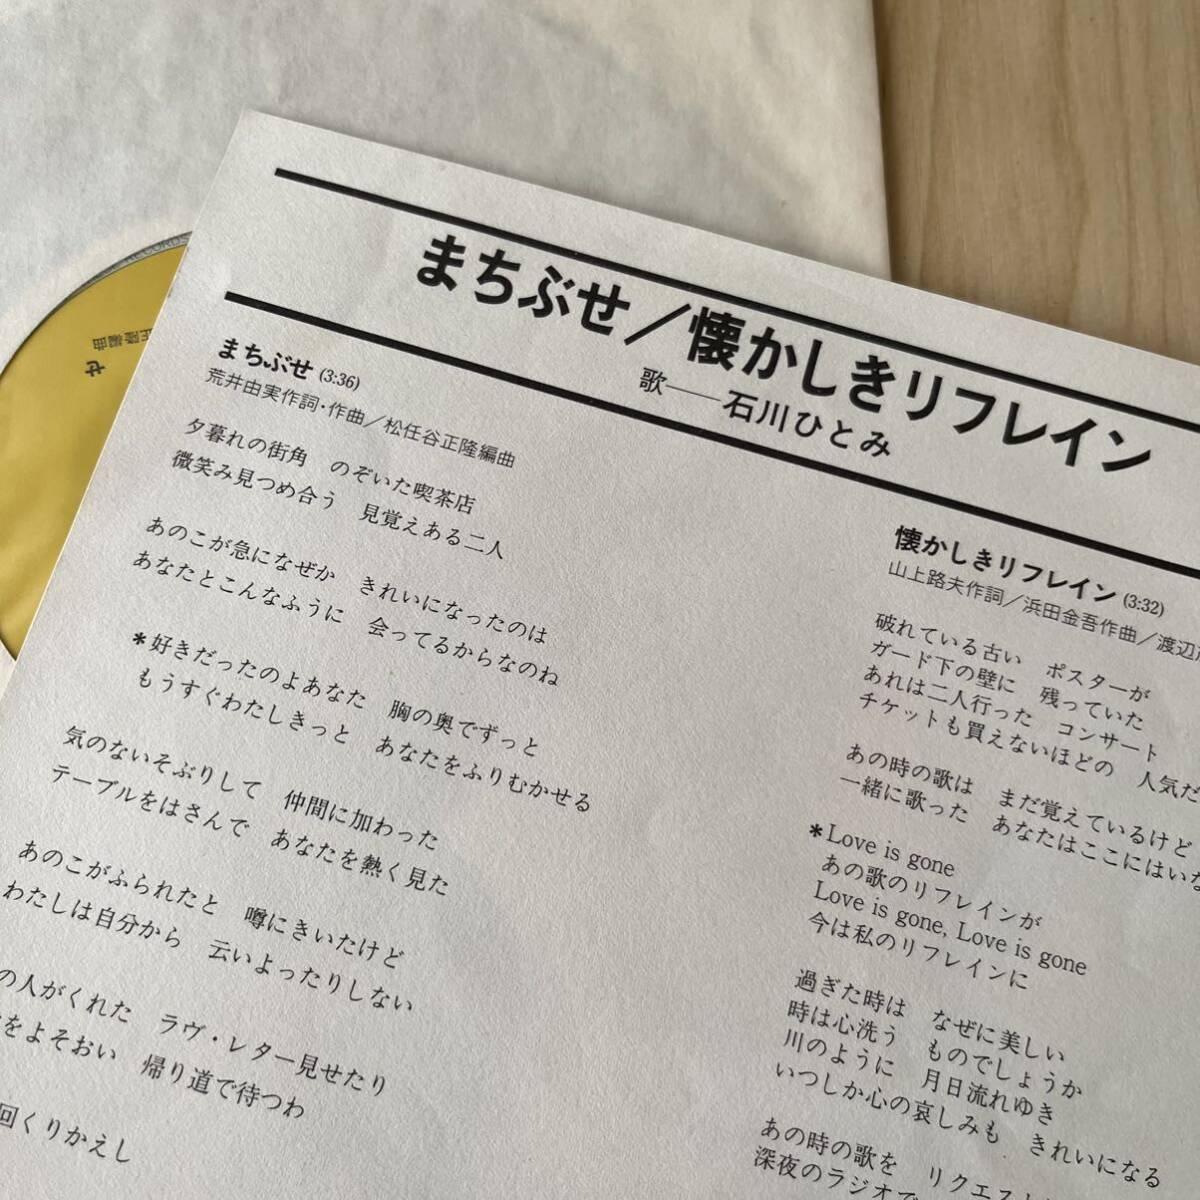 まちぶせ／懐かしきリフレイン
歌――石川ひとみ
まちぶせ (3:36)
荒井由実作詞・作曲／松任谷正隆編曲
夕暮れの街角　のぞいた喫茶店
微笑み見つめ合う　見覚えある二人
あのこが急になぜか　きれいになったのは
あなたとこんなふうに　会ってるからなのね
＊好きだったのよあなた　胸の奥でずっと
もうすぐわたしきっと　あなたをふりむかせる
気のないそぶりして　仲間に加わった
テーブルをはさんで　あなたを熱く見た
あのこがふられたと　噂にきいたけど
わたしは自分から　云いよったりしない
の人がくれた　ラヴ・レター見せたり
をよそおい　帰り道で待つわ
回くりかえし
懐かしきリフレイン (3:32)
山上路夫作詞／浜田金吾作曲／渡辺
破れている古い　ポスターが
ガード下の壁に　残っていた
あれは二人行った　コンサート
チケットも買えないほどの　人気だ
あの時の歌は　まだ覚えているけど
一緒に歌った　あなたはここにはいな
＊Love is gone
あの歌のリフレインが
Love is gone, Love is gone
今は私のリフレインに
過ぎた時は　なぜに美しい
時は心洗う　ものでしょうか
川のように　月日流れゆき
いつしか心の哀しみも　きれいになる
あの時の歌を　リクエスト
深夜のラジオで
RECORDS
正隆編曲
せ